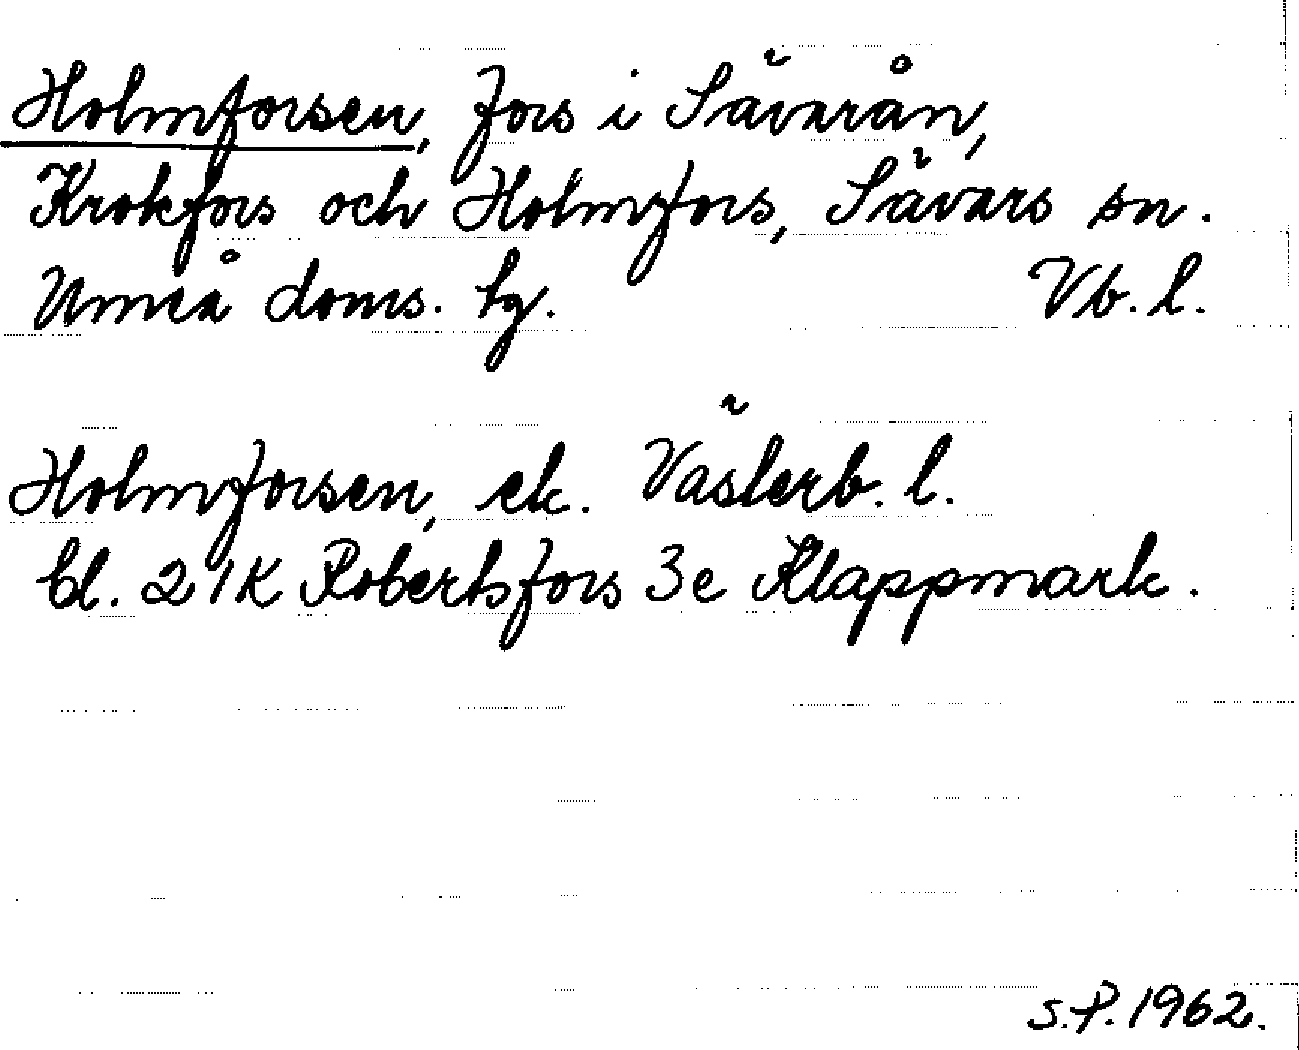 Holmforsen, fors i Sävarån,
Krokfors och Holmfors, Sävars sn.
Umeå doms. tg. Vb. l.
Holmforsen, ek. Västerb. l.
bl. 21K Robertsfors 3e Klappmark.
S.P. 1962.